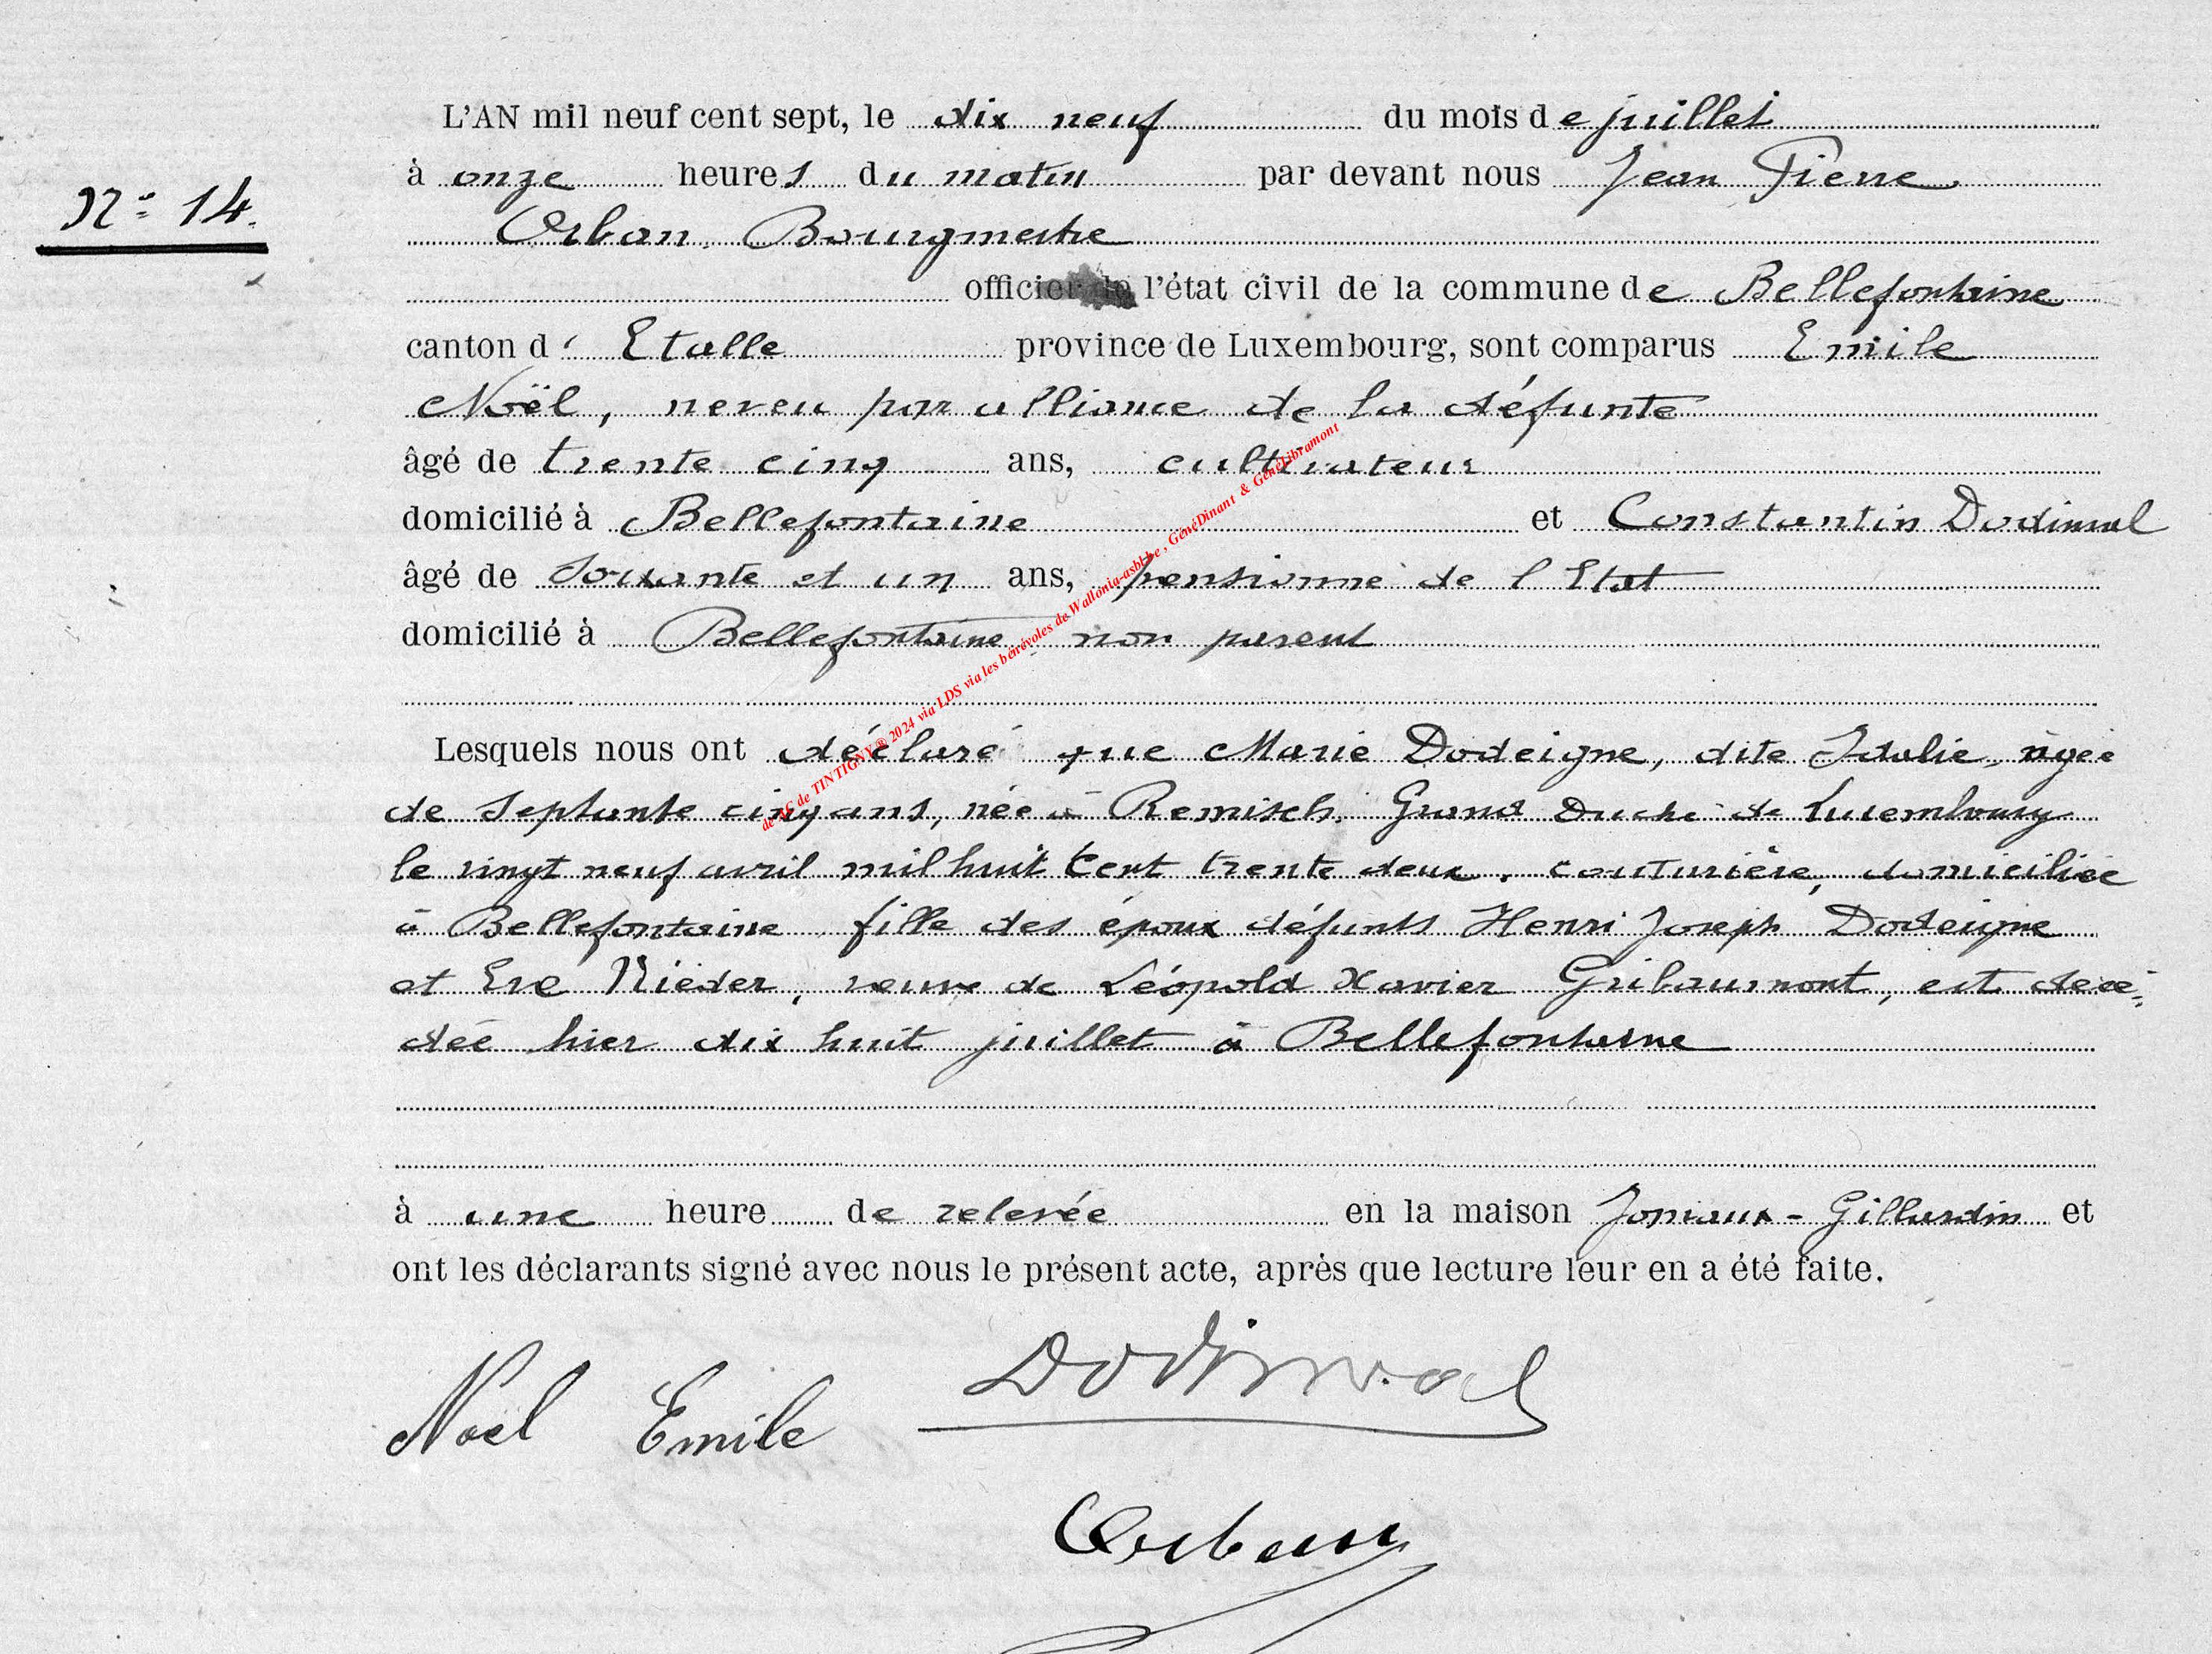 L'AN mil neuf cent sept, le dix neuf du mois de juillet
à onze heures du matin par devant nous Jean Pierre
N° 14.
Orban, Bourgmestre
officier de l'état civil de la commune de Bellefontaine
canton d' Etalle province de Luxembourg, sont comparus Emile
Noël, neveu par alliance de la défunte
âgé de trente cinq ans, cultivateur
domicilié à Bellefontaine et Constantin Dodinval
âgé de Soixante et un ans, pensionné de l'Etat
domicilié à Bellefontaine non parent
Lesquels nous ont déclaré que Marie Dodeigne, dite Idalie, âgée
de Septante cinq ans, née à Remisch, Grand Duché de Luxembourg
le vingt neuf avril mil huit cent trente deux, couturière, domiciliée
à Bellefontaine, fille des époux défunts Henri Joseph Dodeigne
et Eve Nieder, veuve de Léopold Xavier Gribaumont, est décé-
dée hier dix huit juillet à Bellefontaine
à une heure de relevée en la maison Joniaux-Gillardin et
ont les déclarants signé avec nous le présent acte, après que lecture leur en a été faite.
Noël Emile Dodinval
Orban
de AC de TINTIGNY® 2024 via LDS via les bénévoles de Wallonia-asbl.be, GénéDinant & GénéLibramont